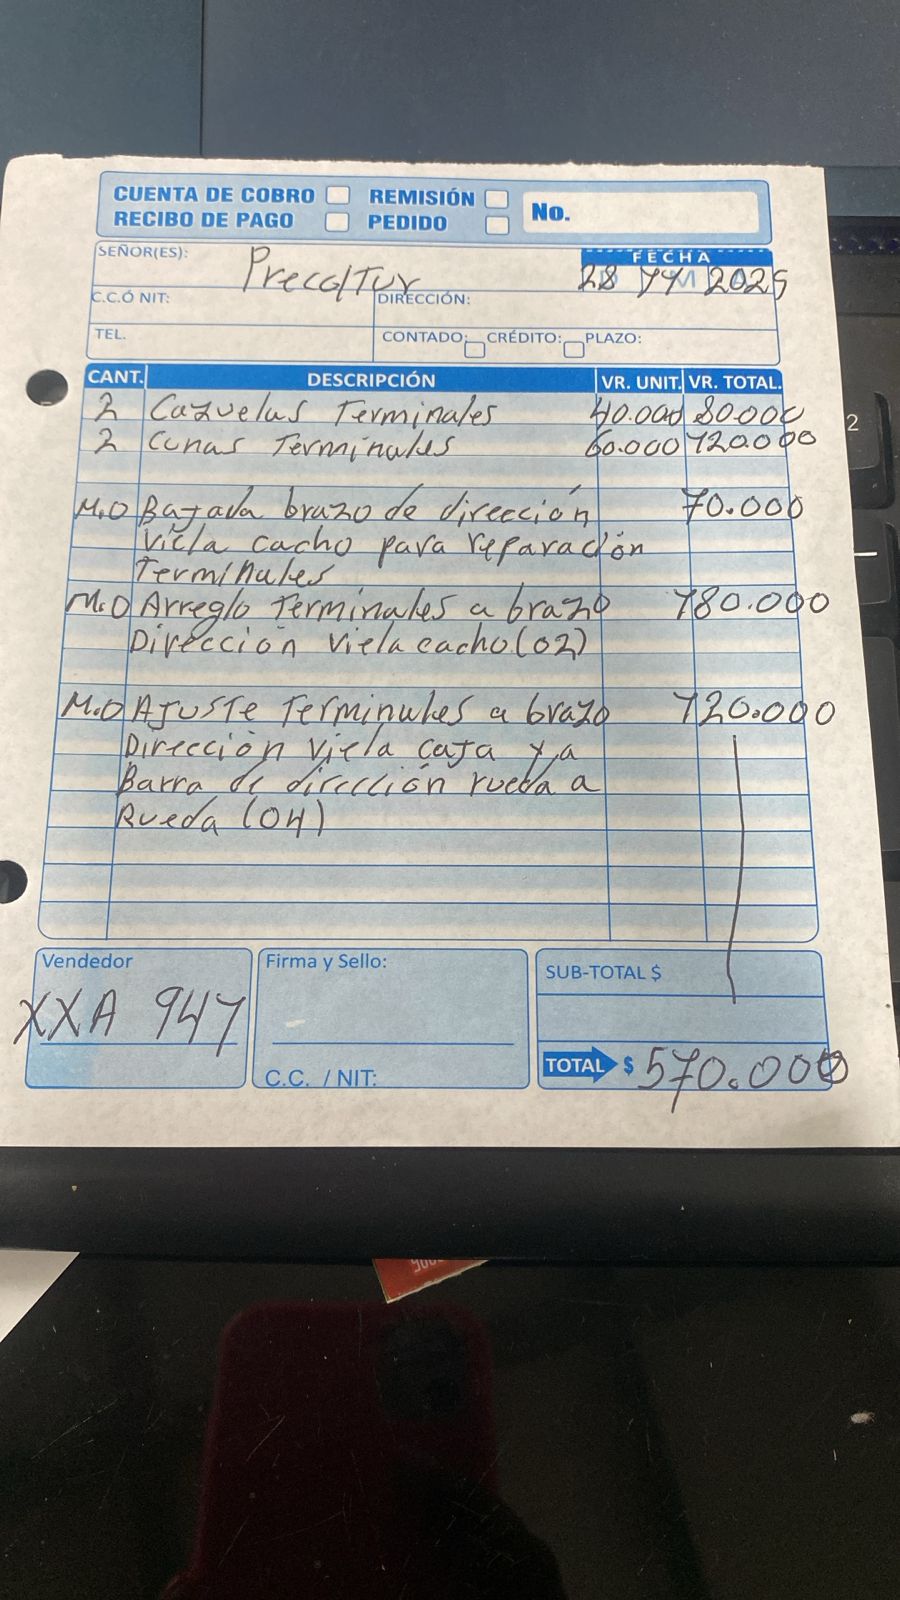 CUENTA DE COBRO REMISIÓN No.
RECIBO DE PAGO PEDIDO
SEÑOR(ES): Precoltur FECHA
28 11 2025
C.C.Ó NIT: DIRECCIÓN:
TEL. CONTADO: CRÉDITO: PLAZO:
CANT. DESCRIPCIÓN VR. UNIT. VR. TOTAL.
2 Cazuelas Terminales 40.000 80.000
2 Cunas Terminales 60.000 120.000
M.O Bajada brazo de dirección 70.000
Viela cacho para reparación
Terminales
M.O Arreglo Terminales a brazo 180.000
Dirección Viela cacho (02)
M.O Ajuste Terminales a brazo 120.000
Dirección Viela caja y a
Barra de dirección rueda a
Rueda (04)
Vendedor Firma y Sello: SUB-TOTAL $
XXA 947
C.C. / NIT: TOTAL $ 570.000
2